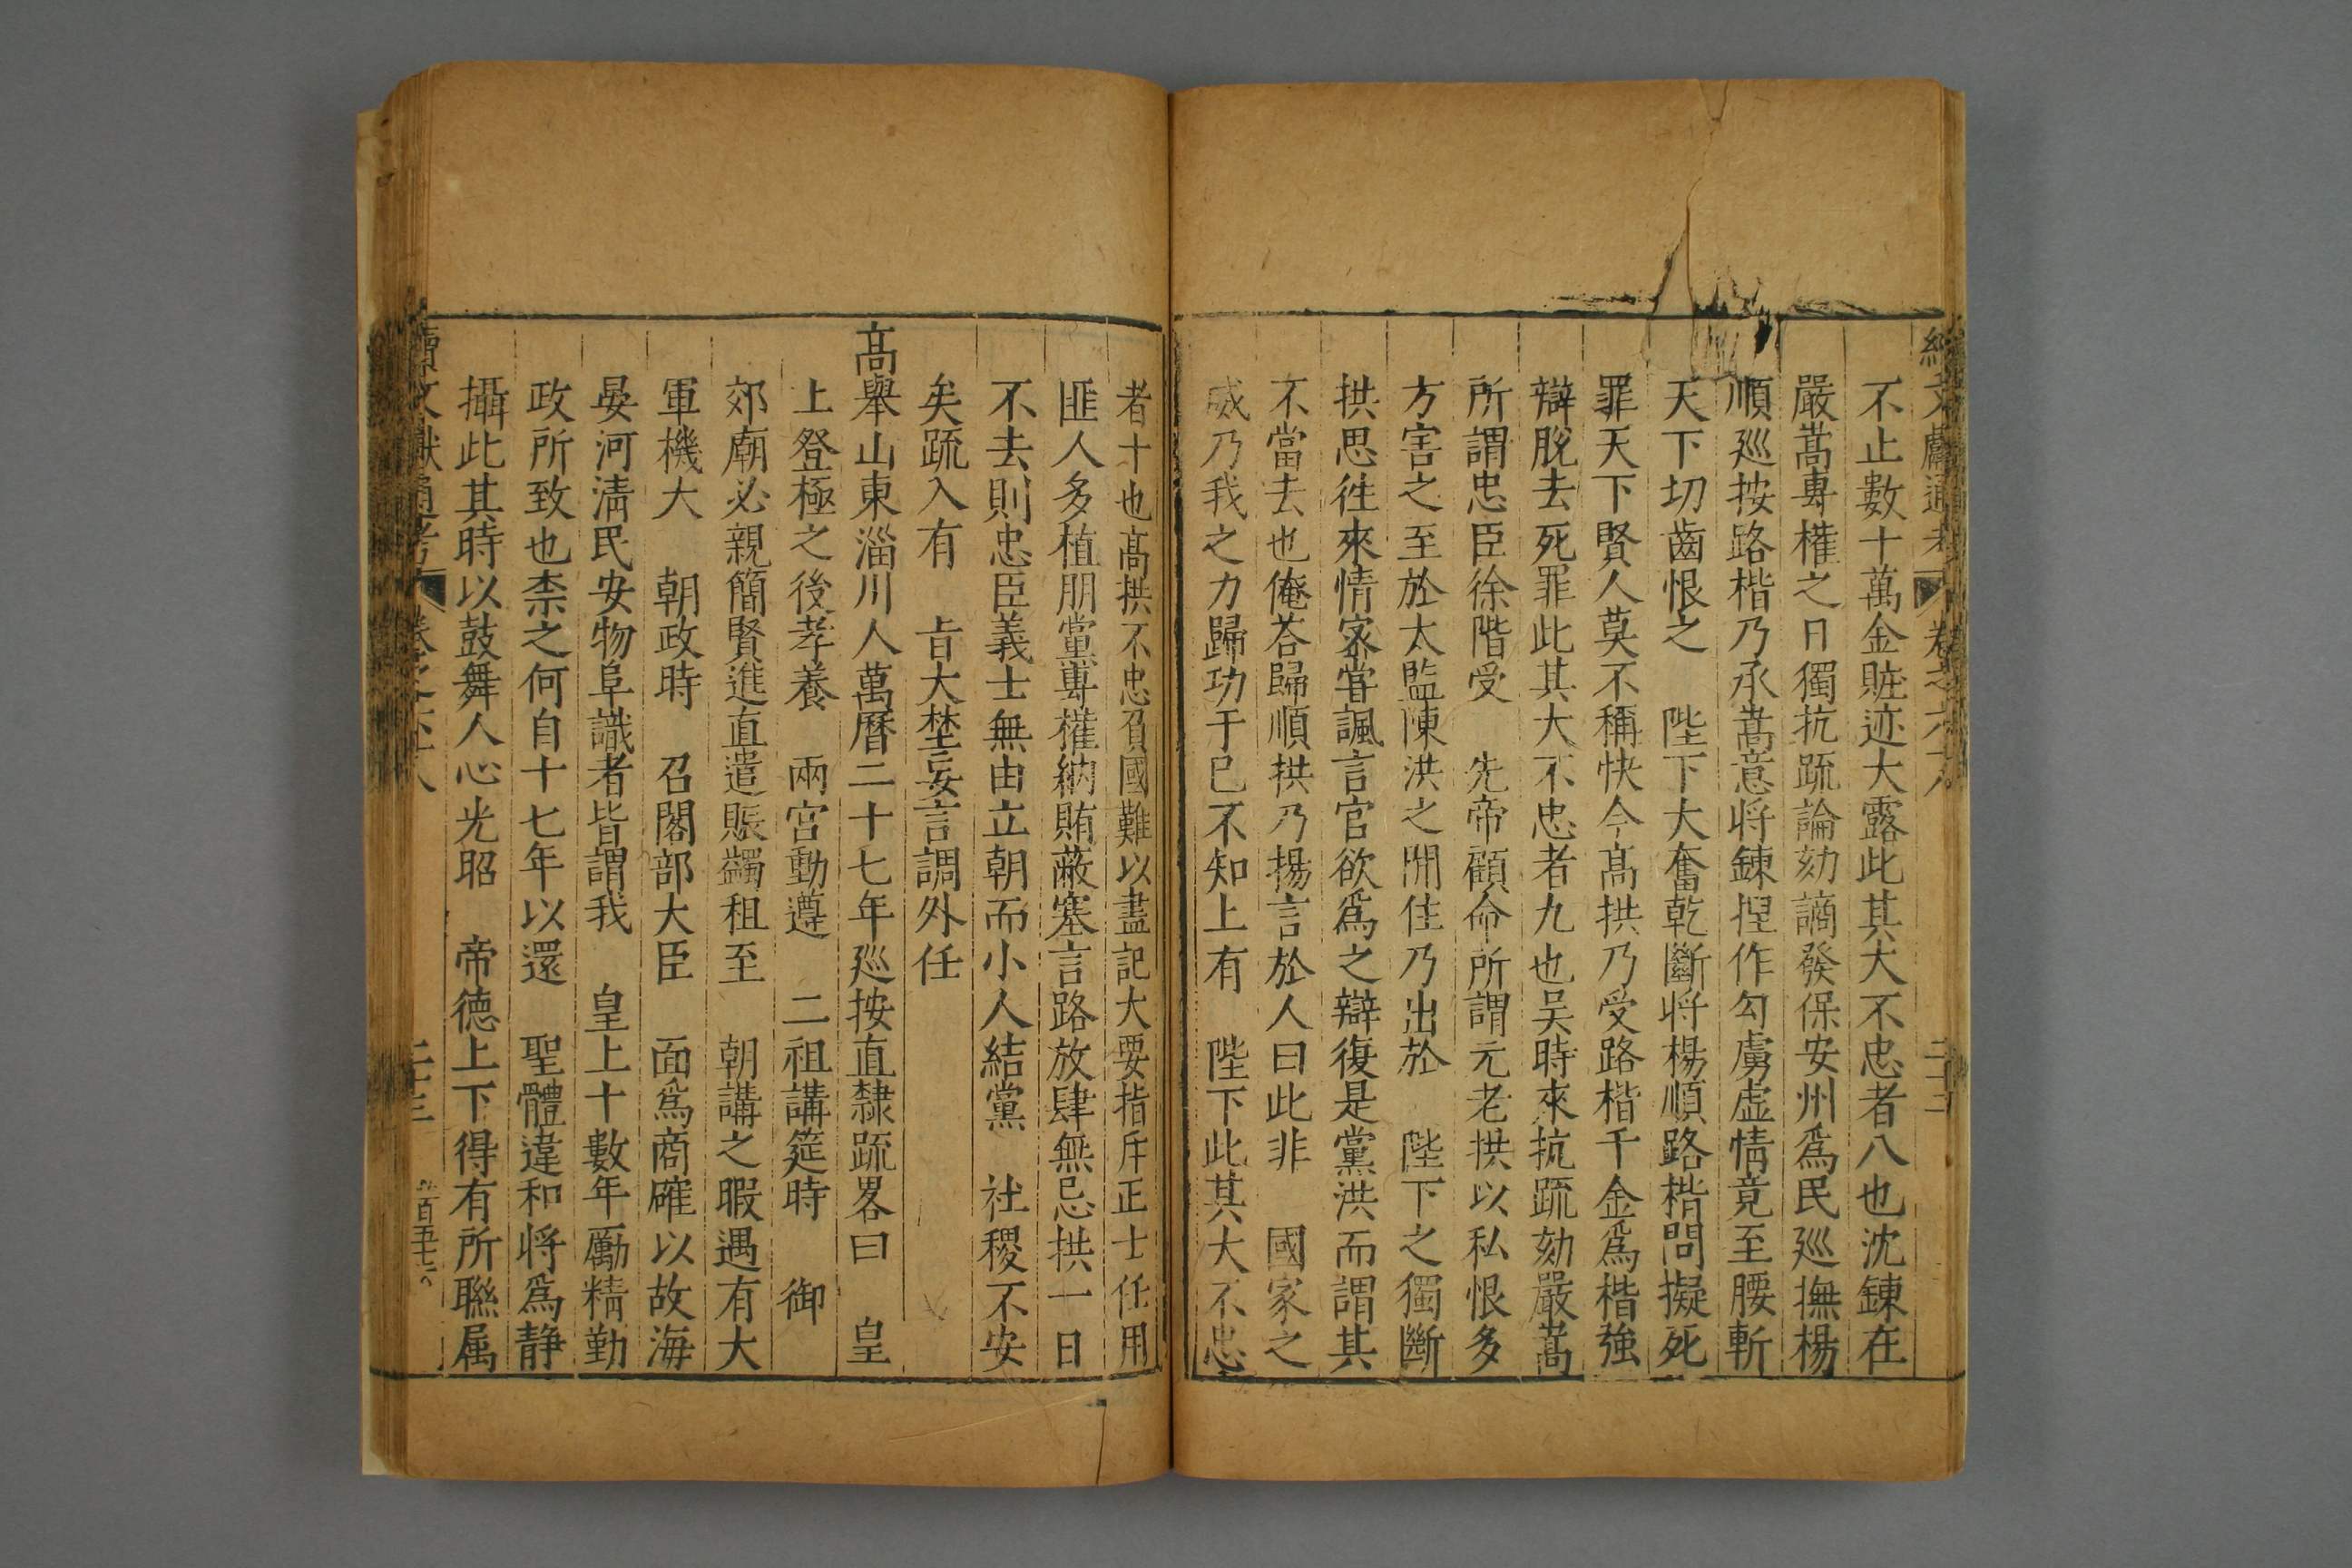 文獻通考 卷之六十八 二十二
不止數十萬金賍迹大露此其大不忠者八也沈鍊在
嚴嵩專權之日獨抗疏論劾謫發保安州爲民廵撫楊
順廵按路楷乃承嵩意将鍊捏作勾虜虛情竟至腰斬
天下切齒恨之 陛下大奮乾斷将楊順路楷問擬死
罪天下賢人莫不稱快今髙拱乃受路楷千金爲楷強
辯脫去死罪此其大不忠者九也吴時來抗疏劾嚴嵩
所謂忠臣徐階受 先帝顧命所謂元老拱以私恨多
方害之至於太監陳洪之閑住乃出於 陛下之獨斷
拱思徃來情宻甞諷言官欲爲之辯復是黨洪而謂其
不當去也俺荅歸順拱乃揚言於人曰此非 國家之
威乃我之力歸功于已不知上有 陛下此其大不忠
者十也髙拱不忠負國難以盡記大要指斥正士任用
匪人多植朋黨專權納賄蔽塞言路放肆無忌拱一日
不去則忠臣義士無由立朝而小人結黨 社稷不安
矣疏入有 㫖大埜妄言調外任
髙舉山東淄川人萬曆二十七年廵按直隸疏畧曰 皇
上登極之後孝養 兩宮動遵 二祖講筵時 御
郊廟必親簡賢進直遣賑蠲租至 朝講之暇遇有大
軍機大 朝政時 召閣部大臣 面爲商確以故海
晏河清民安物阜識者皆謂我 皇上十數年勵精勤
政所致也柰之何自十七年以還 聖體違和将爲静
攝此其時以鼓舞人心光昭 帝德上下得有所聯属
續文獻通考 卷之六十八 二十三 百五七六